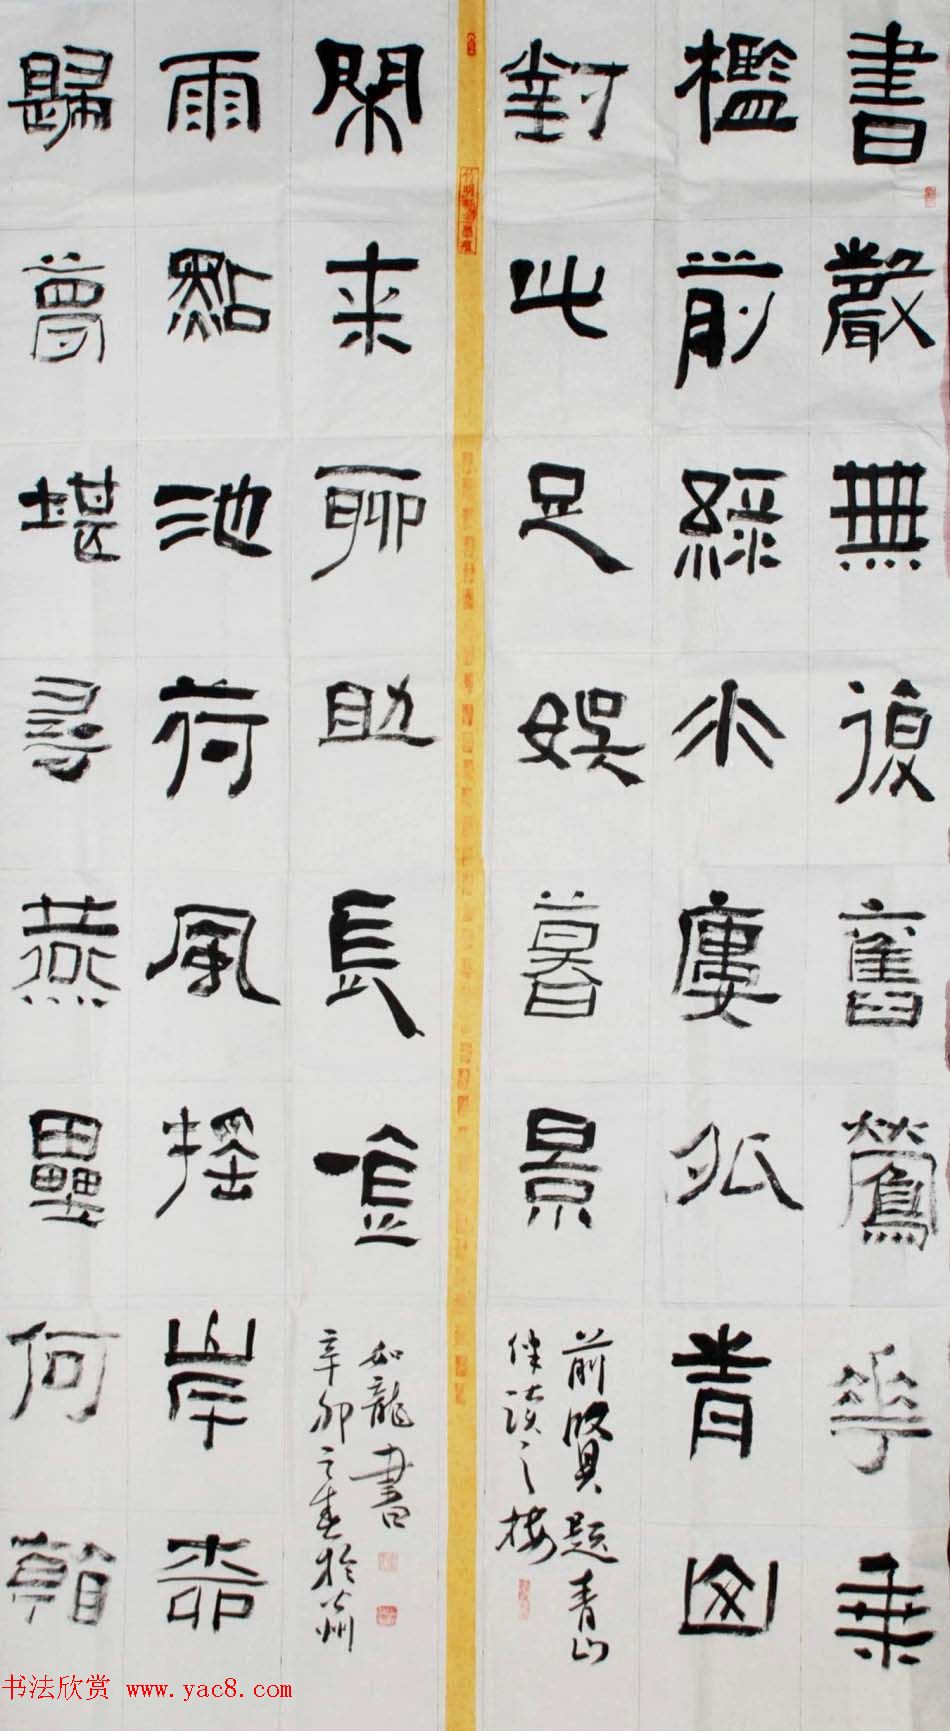 書嚴無復舊鶯華
檻前綠水廔外青山
對此足娛暮景
前賢題青山
讀之樓
歸夢堪尋燕壘何
雨點池荷風搖岸柳
閑來聊助長
如龍書
辛卯之春於州
书法欣赏 www.yac8.com